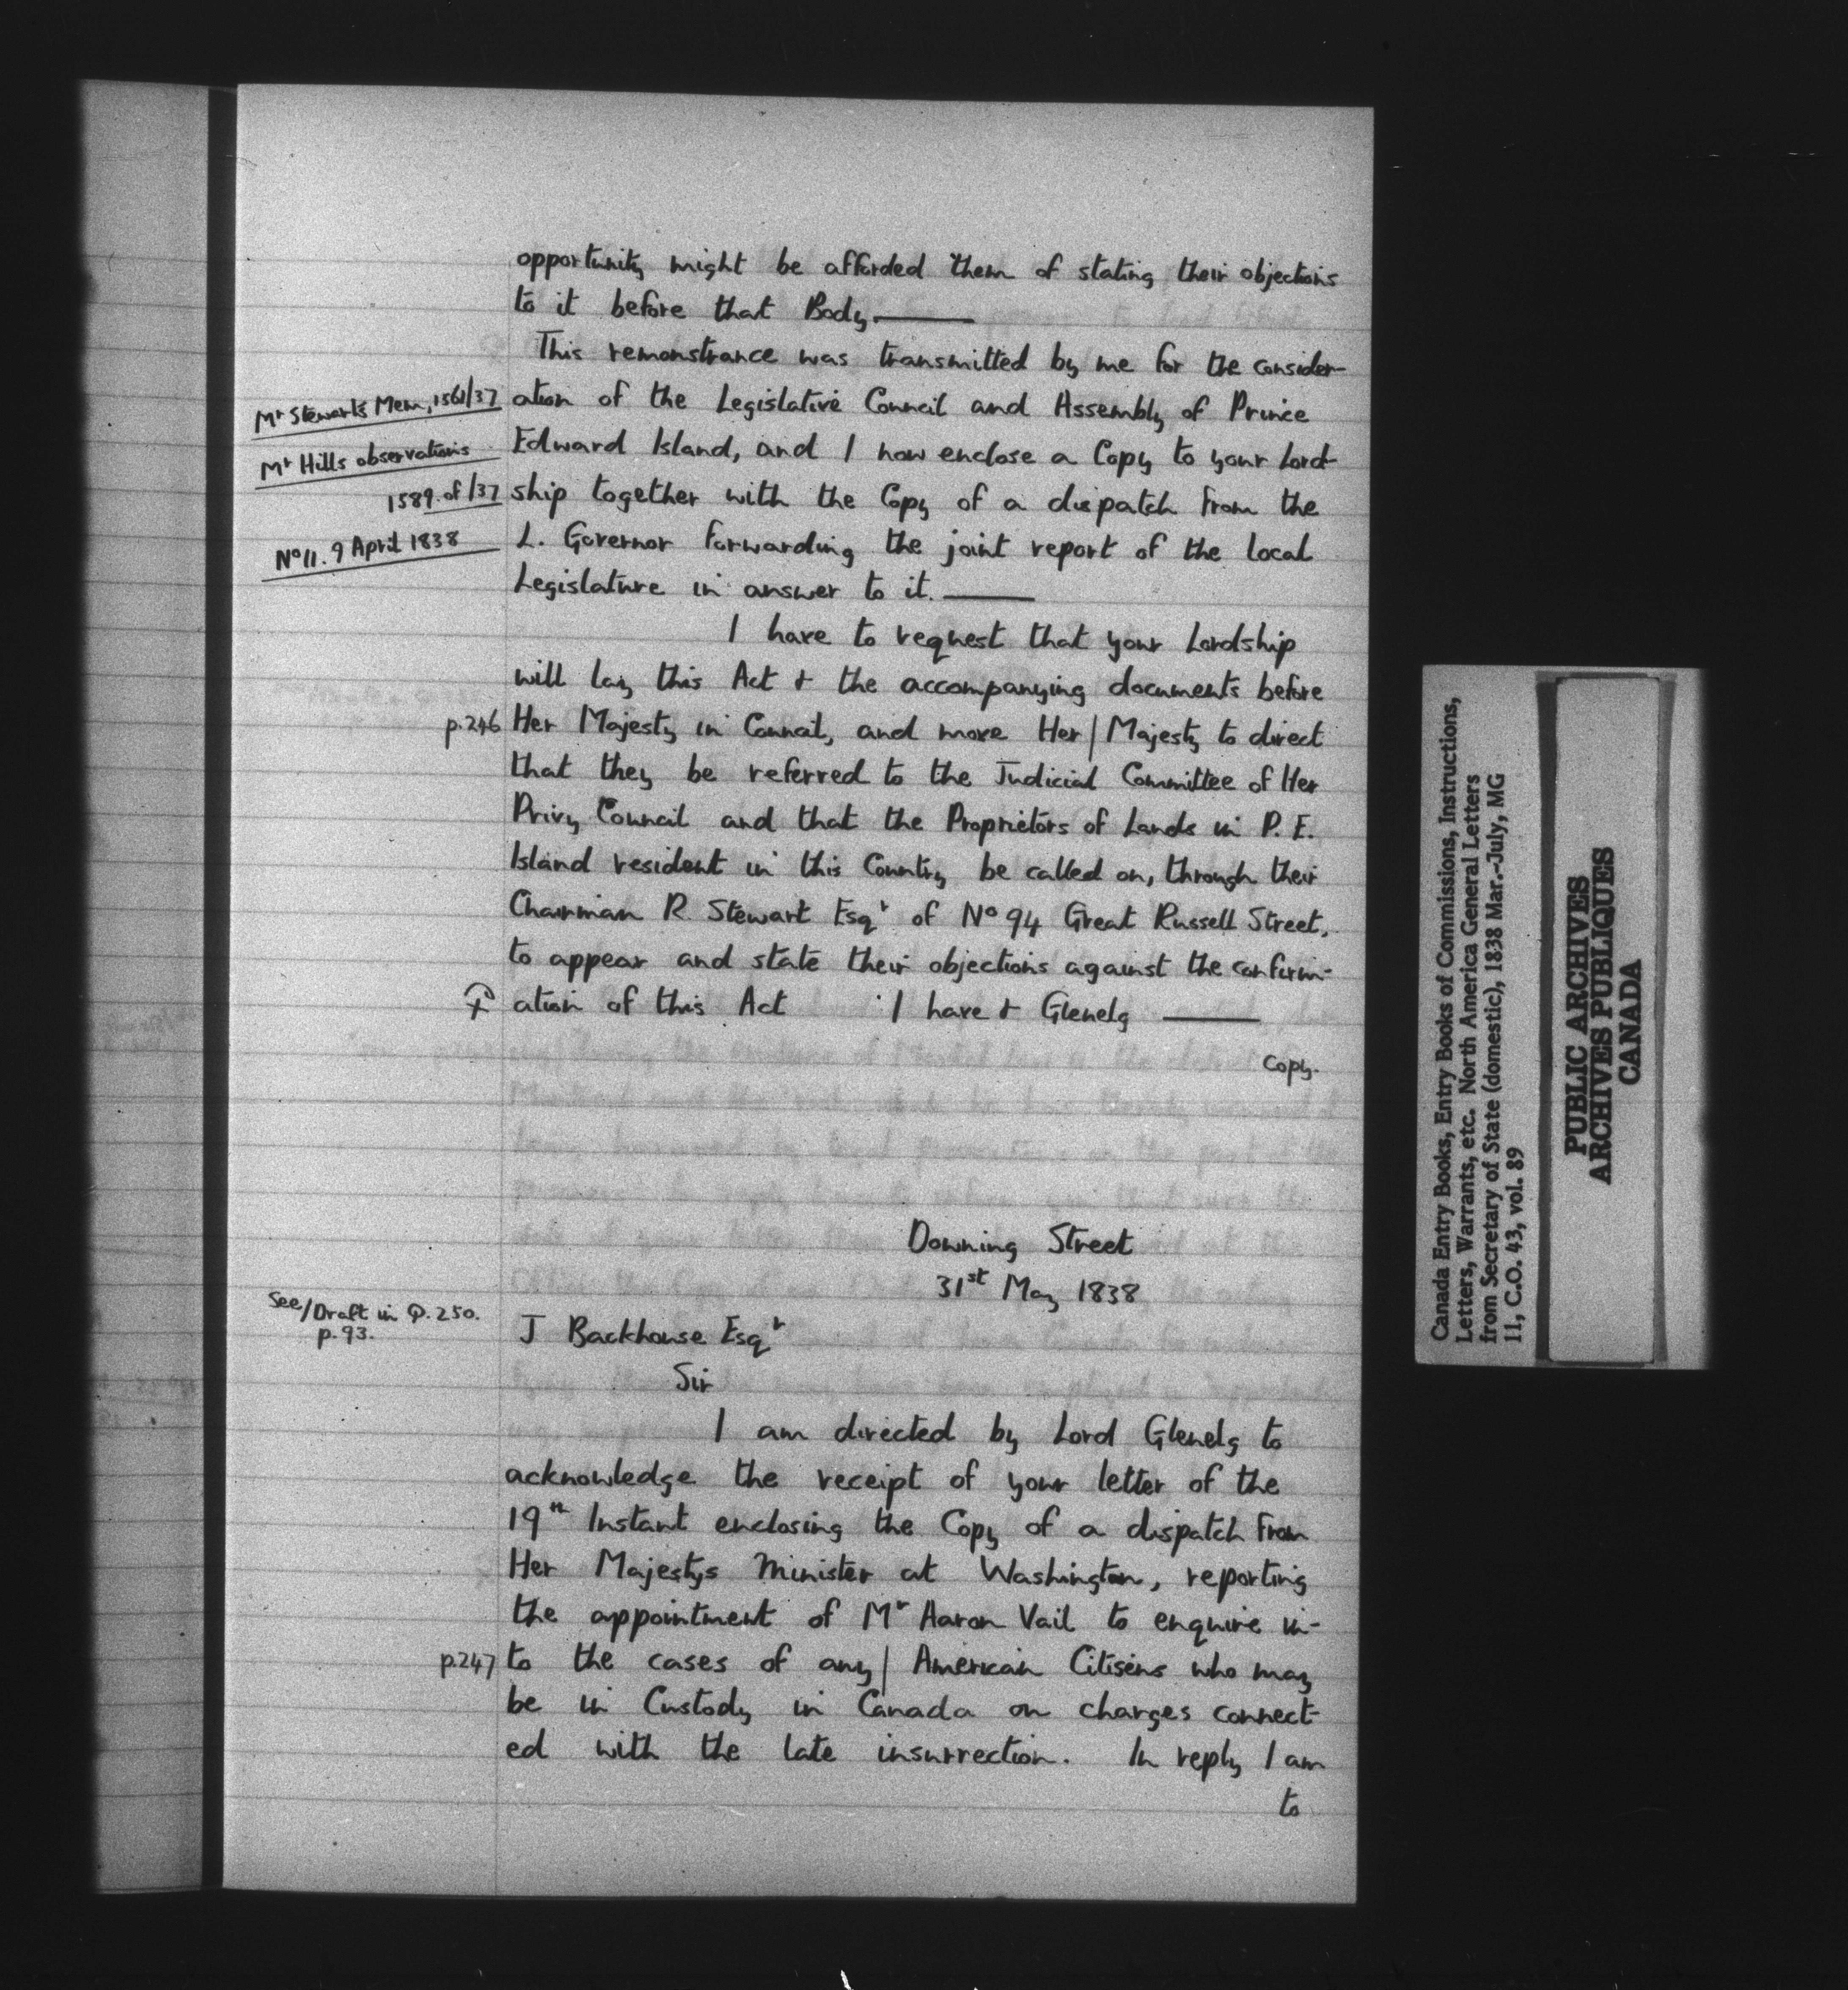 opportunity might be afforded them of stating their objections
to it before that Body
This remonstrance was transmitted by me for the consider-
Mr Stewarts Mem, 1561/37
ation of the Legislative Council and Assembly of Prince
Mr Hills observations
Edward Island, and I now enclose a Copy to your Lord-
1589 of /37
ship together with the Copy of a dispatch from the
No 11. 9 April 1838
L. Governor forwarding the joint report of the local
Legislature in answer to it.
I have to request that your Lordship
will lay this Act & the accompanying documents before
p.246 Her Majesty in Council, and move Her / Majesty to direct
that they be referred to the Judicial Committee of Her
Privy Council and that the Proprietors of Lands in P. E.
Island resident in this Country be called on, through their
Chairman R. Stewart Esqr of No 94 Great Russell Street,
to appear and state their objections against the confirm-
ation of this Act I have & Glenelg
Copy.
Downing Street
31st May 1838
See/Draft in Q.250.
p.93.
J Backhouse Esqr
Sir
I am directed by Lord Glenelg to
acknowledge the receipt of your letter of the
19th Instant enclosing the Copy of a dispatch from
Her Majestys Minister at Washington, reporting
the appointment of Mr Aaron Vail to enquire in-
p.247 to the cases of any / American Citisens who may
be in Custody in Canada on charges connect-
ed with the late insurrection. In reply I am
to
Canada Entry Books, Entry Books of Commissions, Instructions,
Letters, Warrants, etc. North America General Letters
from Secretary of State (domestic), 1838 Mar.-July, MG
11, C.O. 43, vol. 89
PUBLIC ARCHIVES
ARCHIVES PUBLIQUES
CANADA